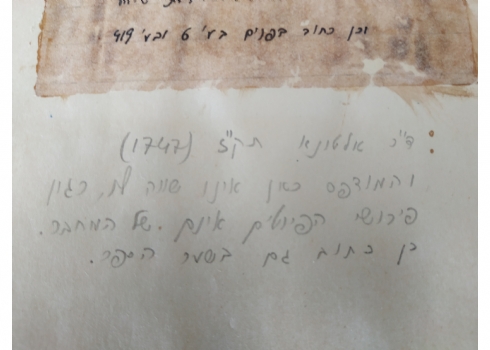 וכן כתוב בפנים בע' 6 ובע' 419.
ד"ר אלטונא תק"ז (1747)
והמודפס כאן אינו שווה לו, כגון
פירושי הפיוטים אינם של המחבר.
כן כתוב גם בשער הספר.